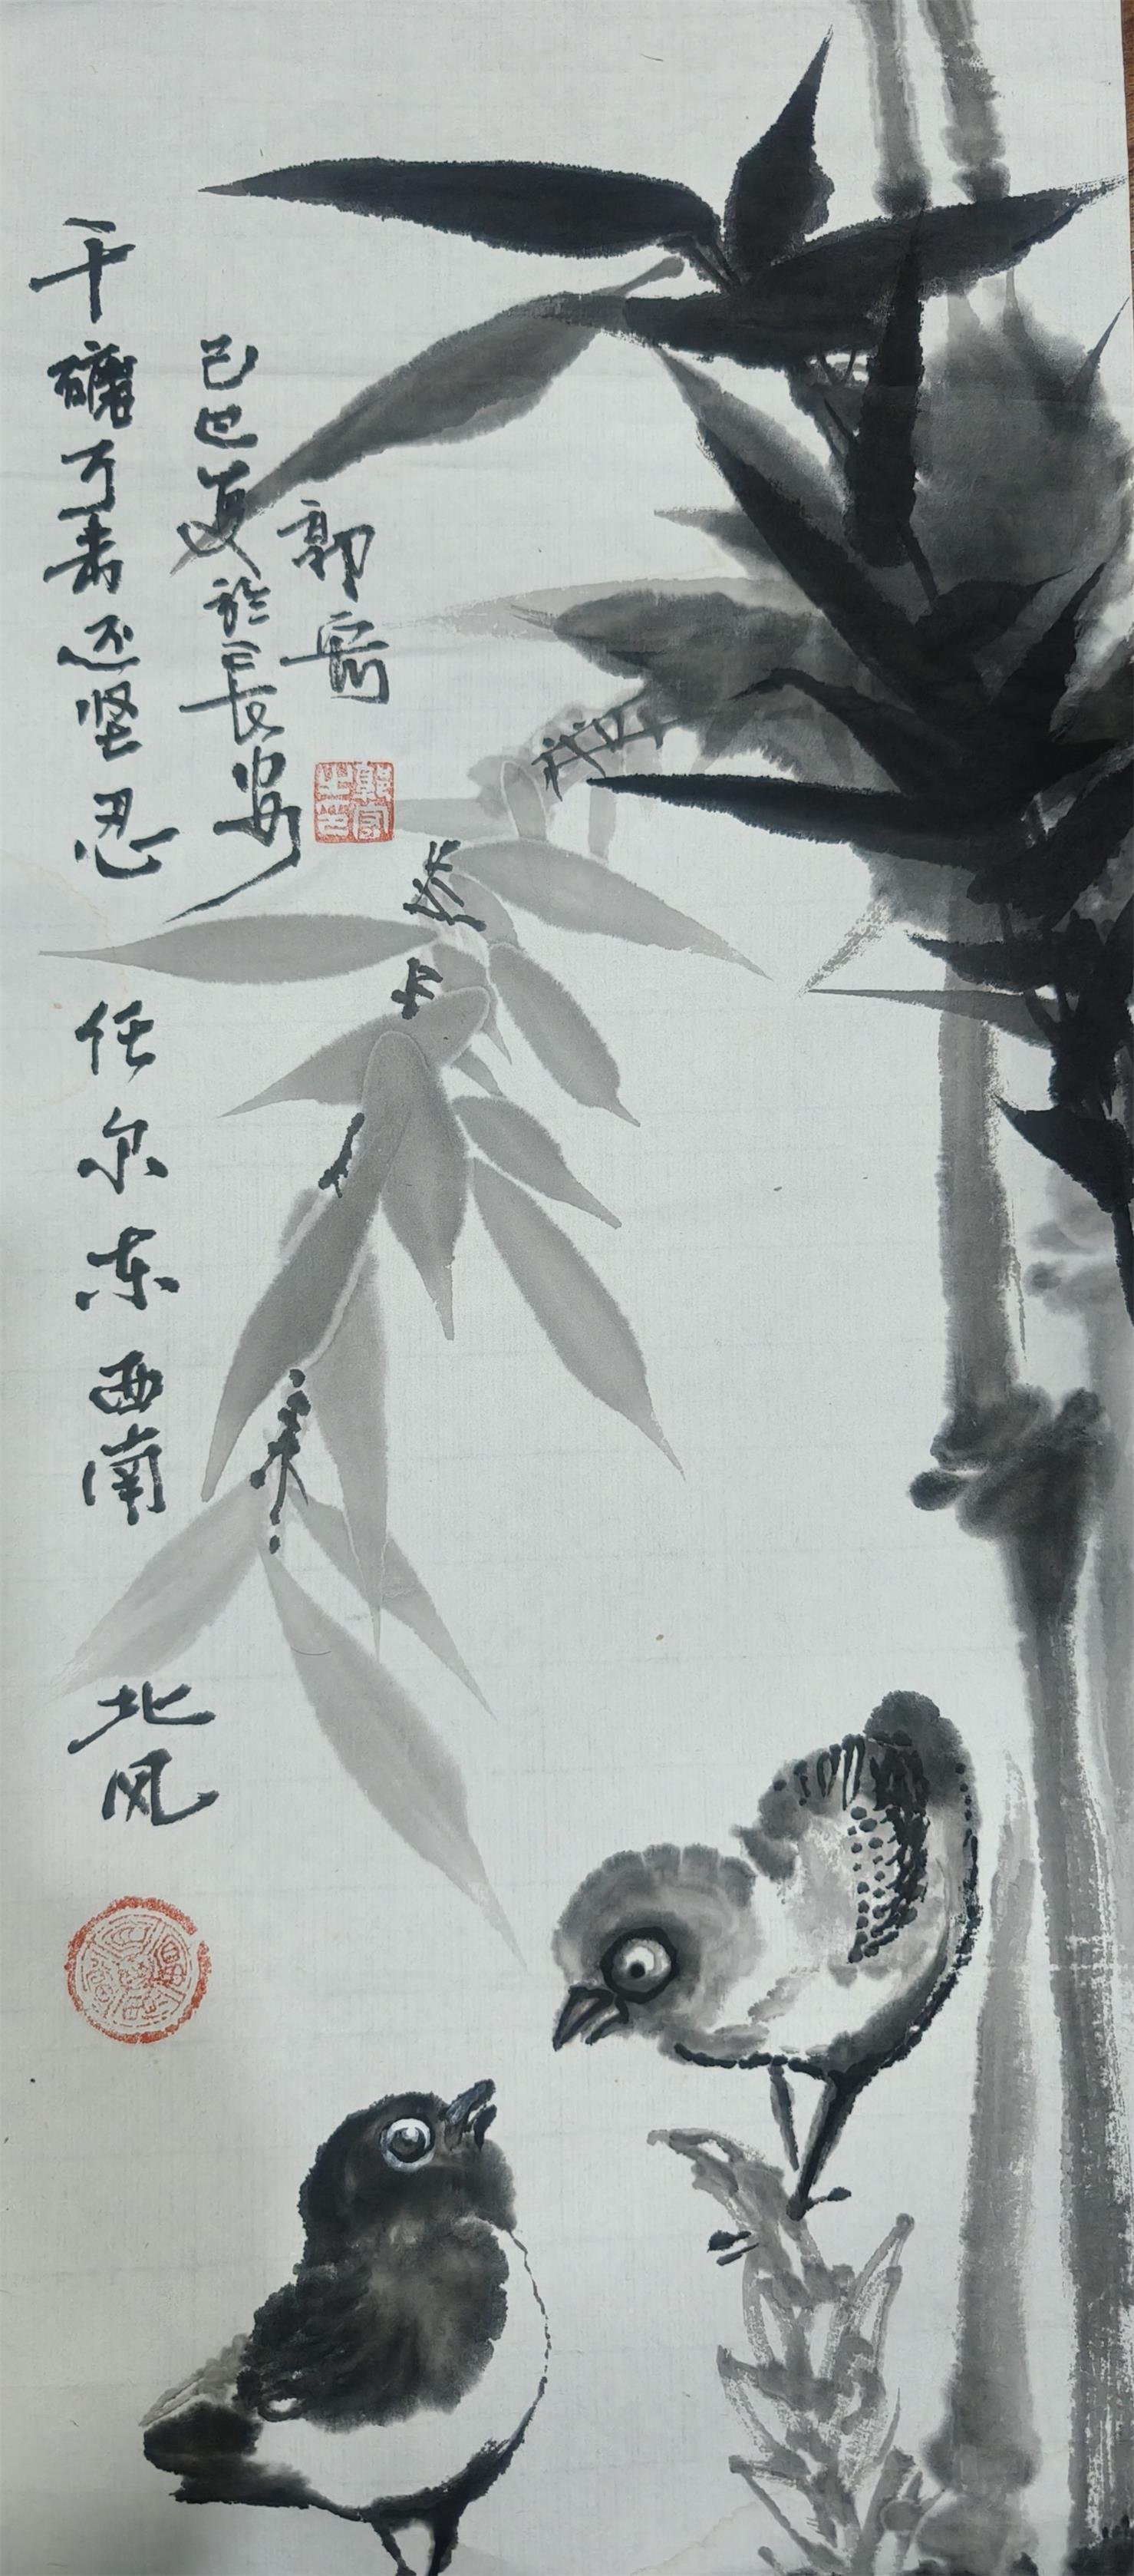 千礳万还坚忍 任尔东西南北风
己巳夏於長安
郭